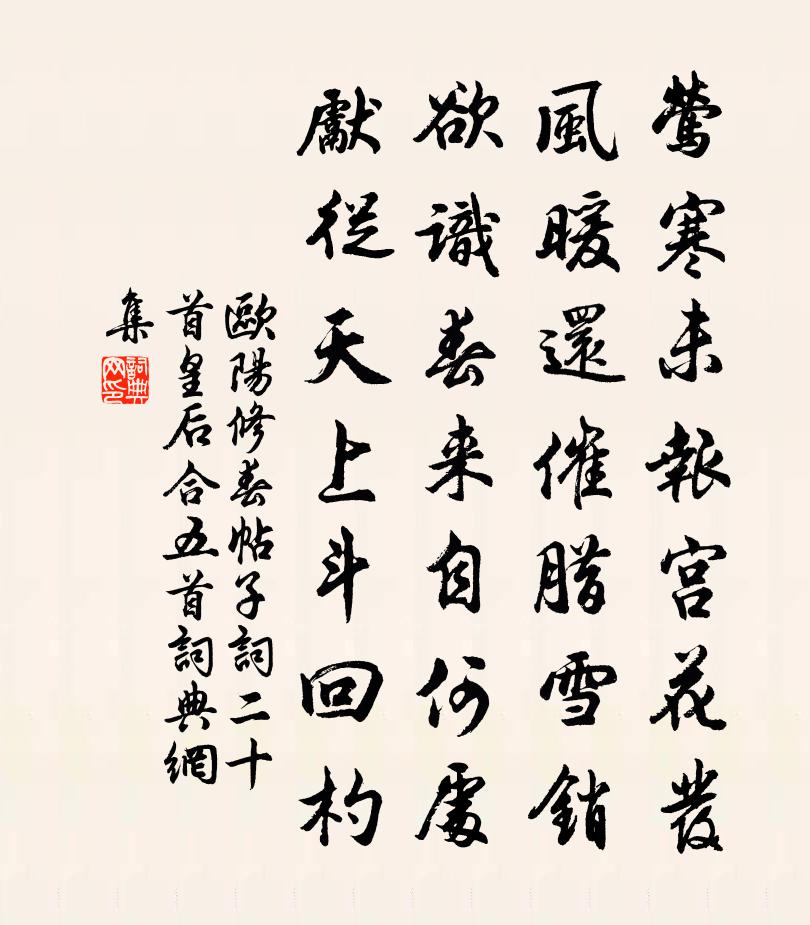 鶯寒未報宮花發
風暖還催腊雪銷
欲識春来自何處
獻從天上斗回杓
歐陽修春帖子詞二十
首皇后合五首詞典網
集
詞典
网印